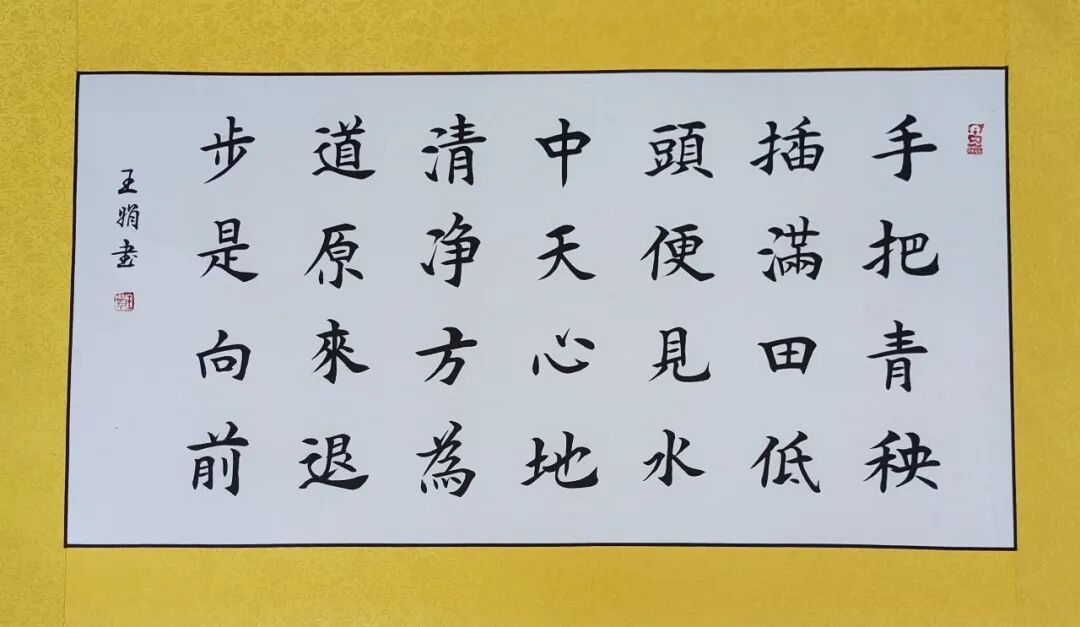 手把青秧
插滿田低
頭便見水
中天心地
清净方為
道原來退
步是向前
王娟書